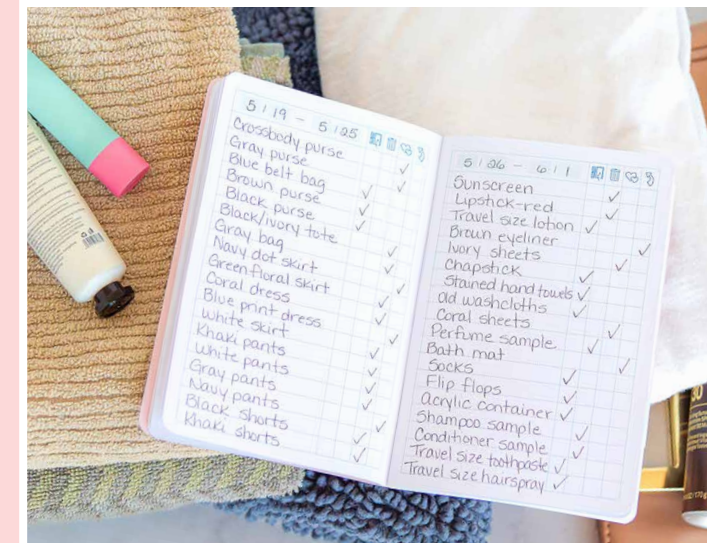 5/19 - 5/25
Crossbody purse
Gray purse
Blue belt bag
Brown purse
Black purse
Black/ivory tote
Gray bag
Navy dot skirt
Green floral skirt
Coral dress
Blue print dress
White skirt
Khaki pants
White pants
Gray pants
Navy pants
Black shorts
Khaki shorts
5/26 - 6/1
Sunscreen
Lipstick-red
Travel size lotion
Brown eyeliner
Ivory sheets
Chapstick
Stained hand towels
Old washcloths
Coral sheets
Perfume sample
Bath mat
Socks
Flip flops
Acrylic container
Shampoo sample
Conditioner sample
Travel size toothpaste
Travel size hairspray